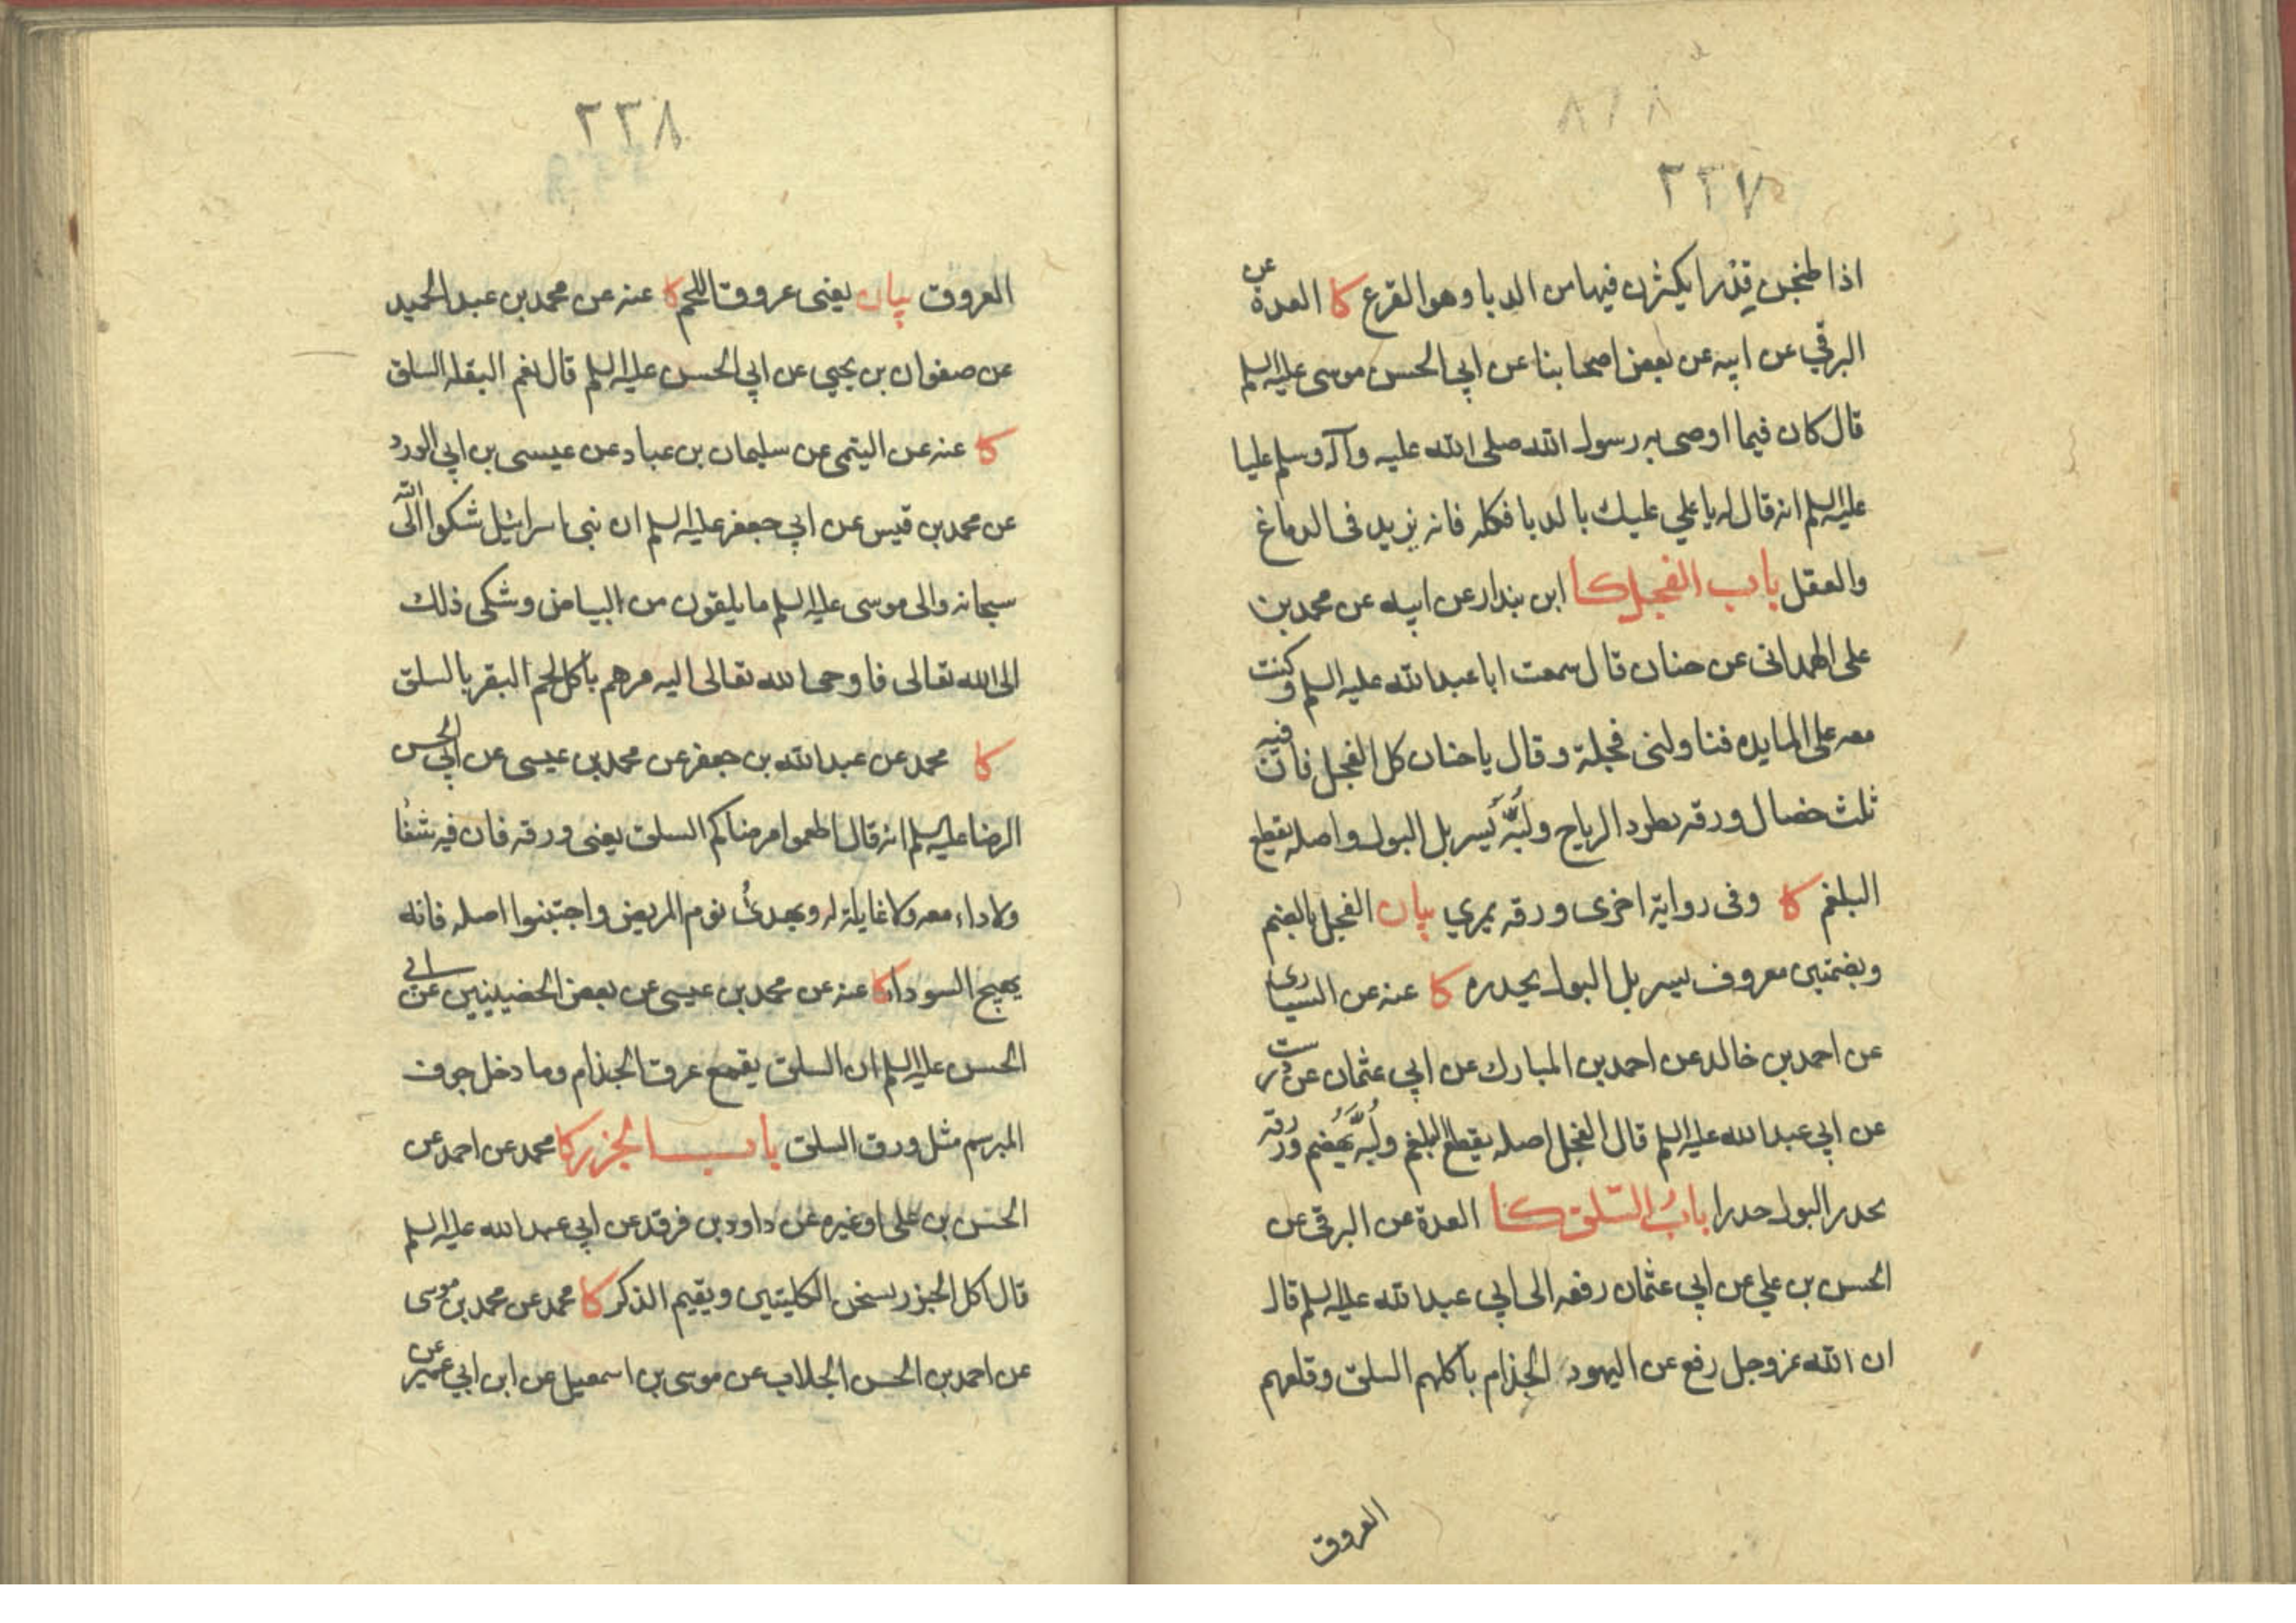 ٢٢٧
اذا طبختن قدرا يكثرن فيها من الدبا وهو القرع كا العدة عن
البرقي عن ابيه عن بعض اصحابنا عن ابي الحسن موسى عليه السلم
قال كان فيما اوصى به رسول الله صلى الله عليه وآله وسلم عليا
عليه السلم انه قال له يا علي عليك بالدبا فكله فانه يزيد في الدماغ
والعقل باب الفجل كا ابن بندار عن ابيه عن محمد بن
على الهمدانى عن حنان قال سمعت ابا عبد الله عليه السلم وكنت
معه على المايده فناولنى فجلة وقال يا حنان كل الفجل فان فيه
ثلث خصال ورقه يطرد الرياح ولُبَّه يُسربل البول واصله يقطع
البلغم كا وفى رواية اخرى ورقه يمري بيان الفجل بالضم
وبضمتين معروف يسربل البول يحدره كا عنه عن السيارى
عن احمد بن خالد عن احمد بن المبارك عن ابي عثمان عن درست
عن ابي عبد الله عليه السلم قال الفجل اصله يقطع البلغم ولُبَّه يَهضم وورقه
يحدر البول حدرا بابُ السّلق كا العدة عن البرقى عن
الحسن بن علي عن ابي عثمان رفعه الى ابي عبد الله عليه السلم قال
ان الله عز وجل رفع عن اليهود الجذام باكلهم السلق وقلعهم
العروق
٢٣٨
العروق بيان يعنى عروق اللحم كا عنه عن محمد بن عبد الحميد
عن صفوان بن يحيى عن ابي الحسن عليه السلم قال نعم البقلة السلق
كا عنه عن اليتمى عن سليمان بن عباد عن عيسى بن ابي الورد
عن محمد بن قيس عن ابي جعفر عليه السلم ان بنى اسرائيل شكوا الى الله
سبحانه والى موسى عليه السلم ما يلقون من البياض وشكى ذلك
الى الله تعالى فاوحى الله تعالى اليه مرهم باكل لحم البقر بالسلق
كا محمد عن عبد الله بن جعفر عن محمد بن عيسى عن ابي الحسن
الرضا عليه السلم انه قال اطعموا مرضاكم السلق يعنى ورقه فان فيه شفا
ولا داء معه ولا غايلة له ويهدئُ نوم المريض واجتنبوا اصله فانه
يهيج السوداء كا عنه عن محمد بن عيسى عن بعض الحضينيين عن ابي
الحسن عليه السلم ان السلق يقمع عرق الجذام وما دخل جوف
المبرسم مثل ورق السلق باب الجزر كا محمد عن احمد عن
الحسن بن على او غيره عن داود بن فرقد عن ابي عبد الله عليه السلم
قال اكل الجزر يسخن الكليتين ويقيم الذكر كا محمد عن محمد بن موسى
عن احمد بن الحسن الجلاب عن موسى بن اسمعيل عن ابن ابي عمير